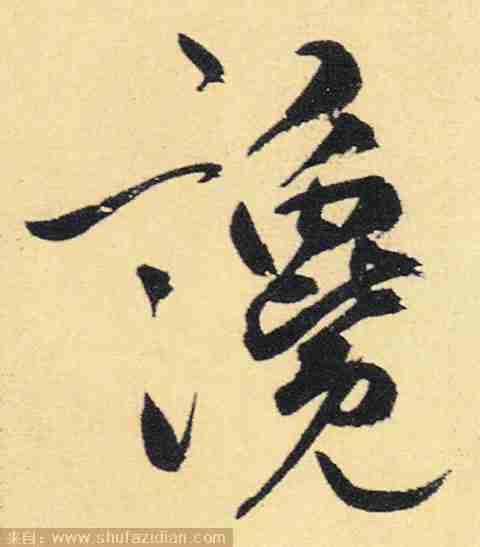 讒
来自：www.shufazidian.com